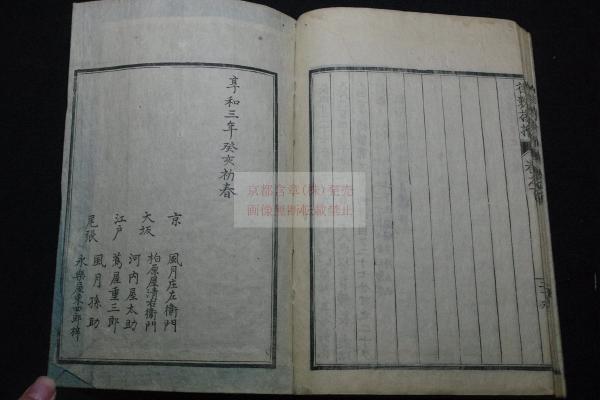 享和三年癸亥初春
京 風月庄左衛門
大坂 柏原屋清右衛門
河内屋太助
江戸 蔦屋重三郎
尾張 風月孫助
永樂屋東四郎梓
京都含章(株)発売
画像無断転載禁止